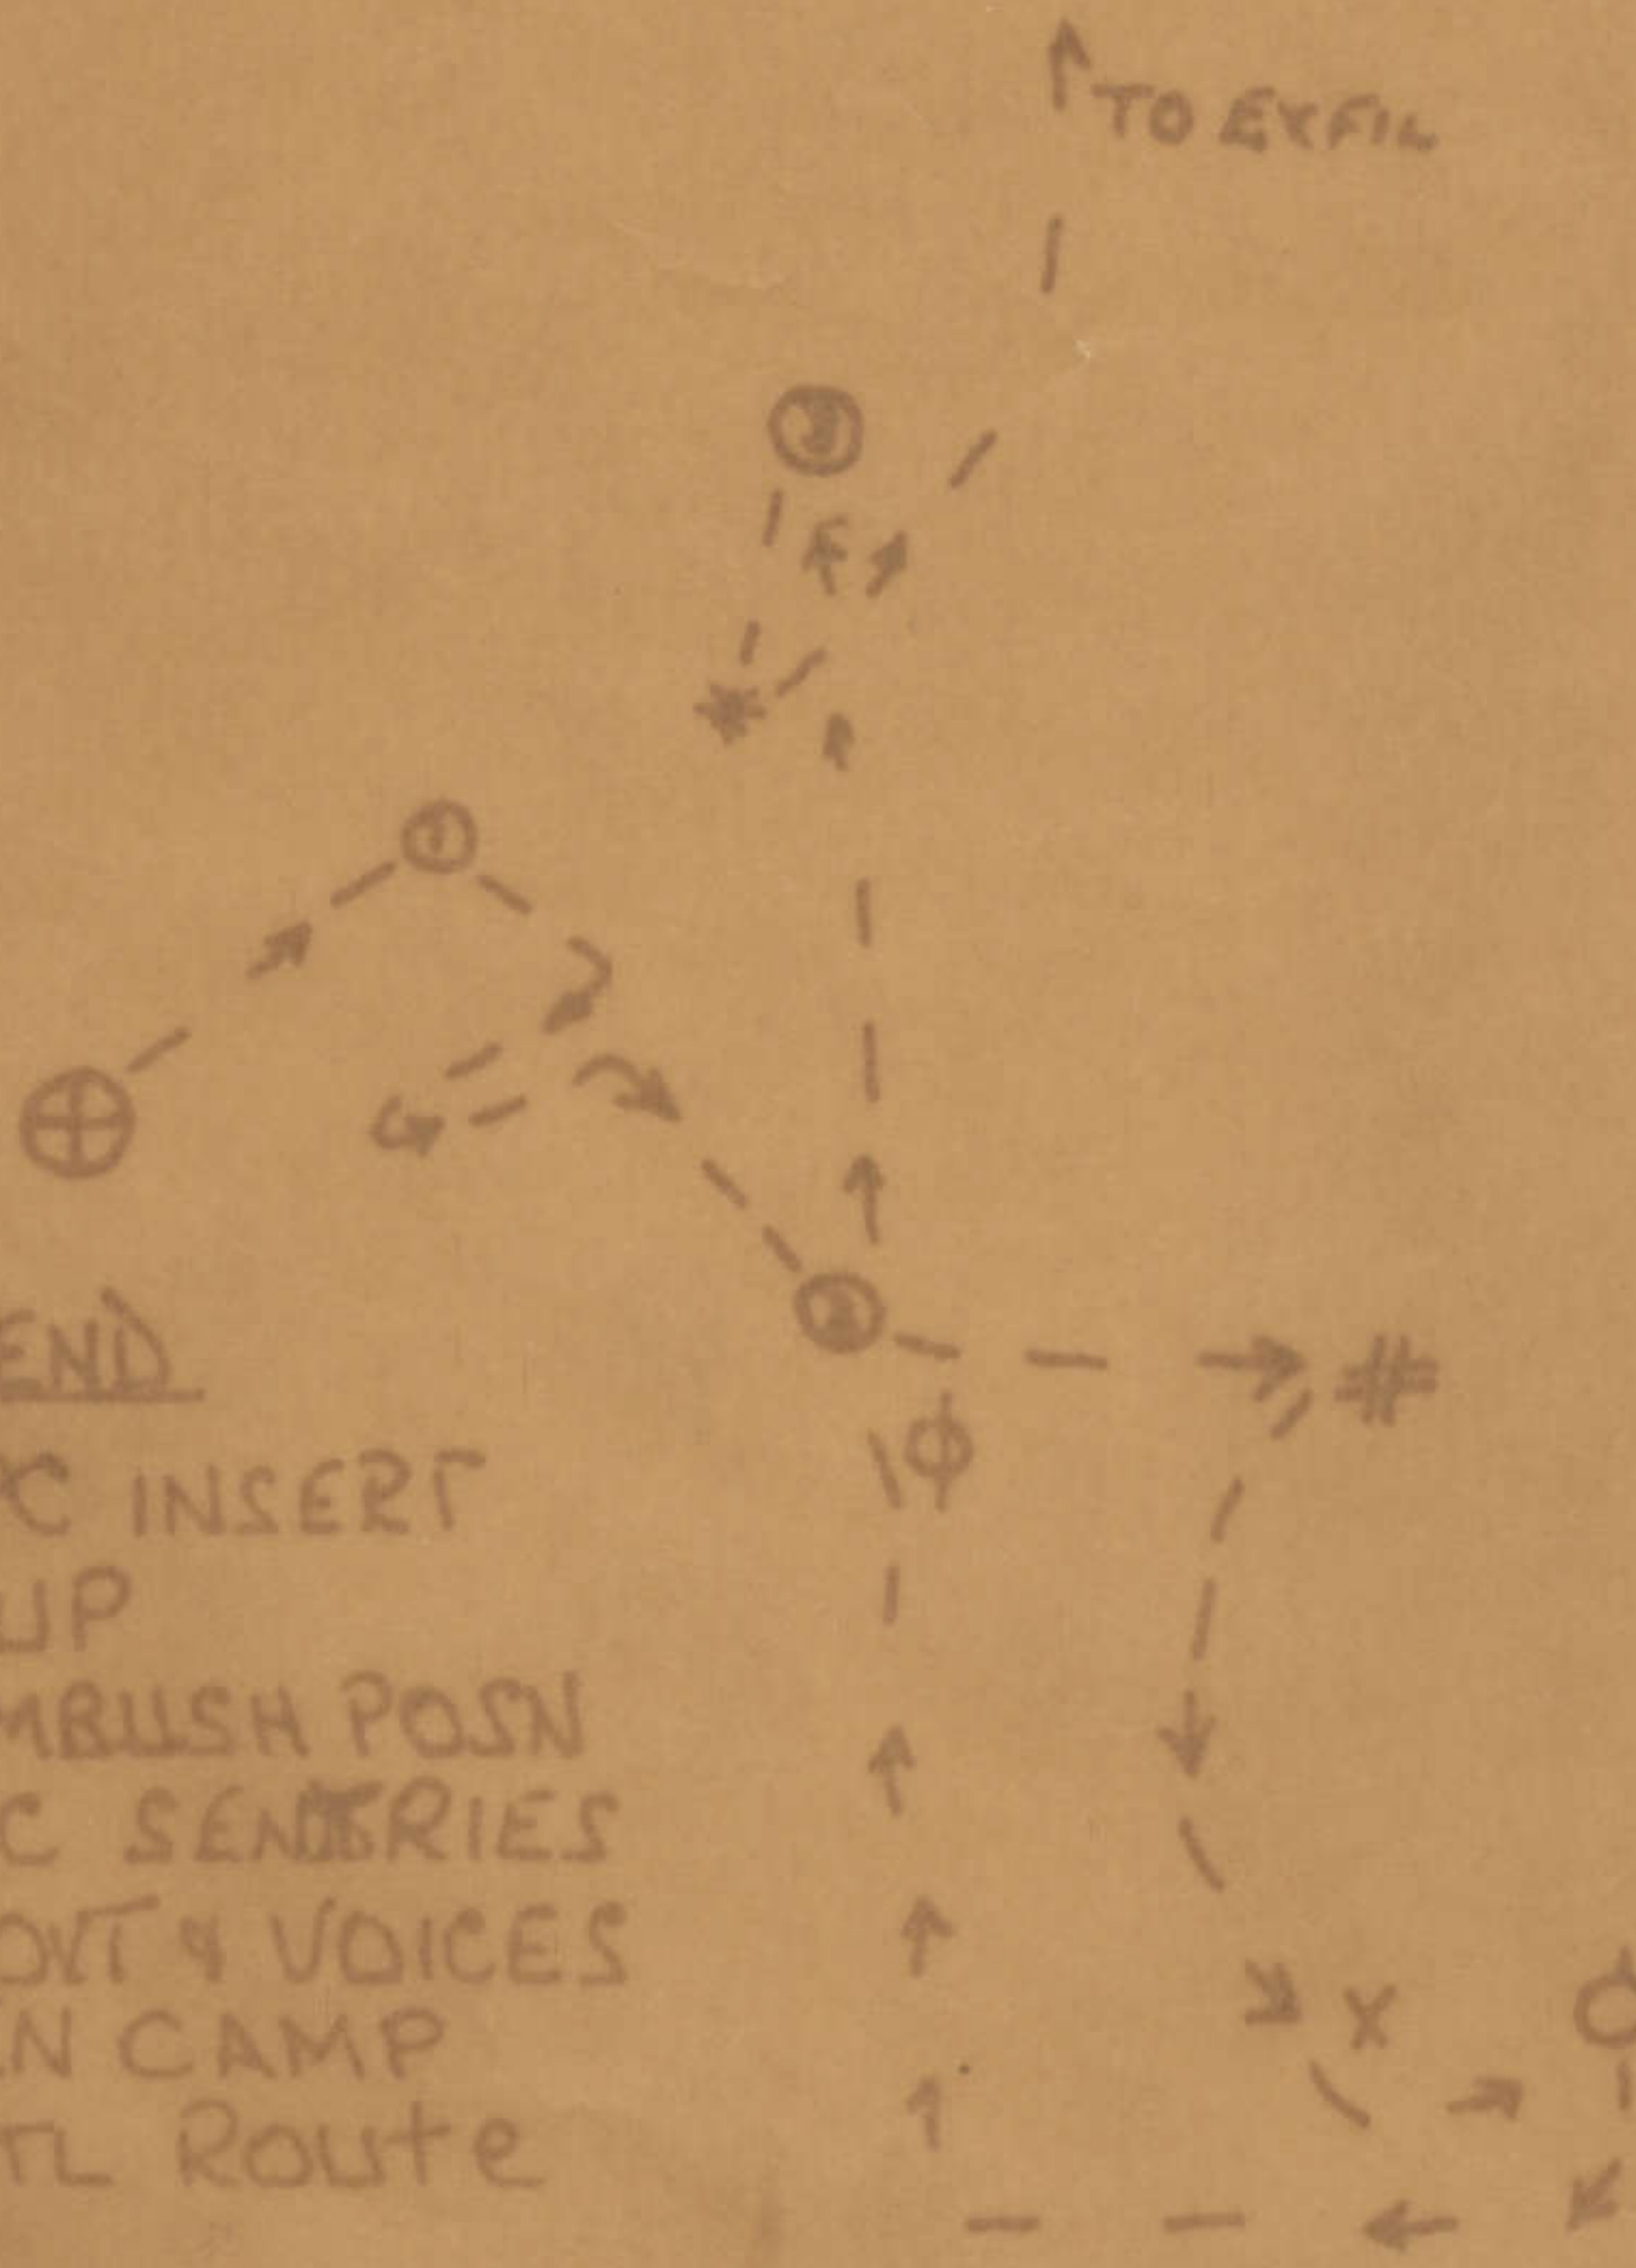 TO EXFIL
3
1
2
END
C INSERT
UP
MBUSH POSN
C SENTRIES
OVT & VOICES
N CAMP
TL Route
X